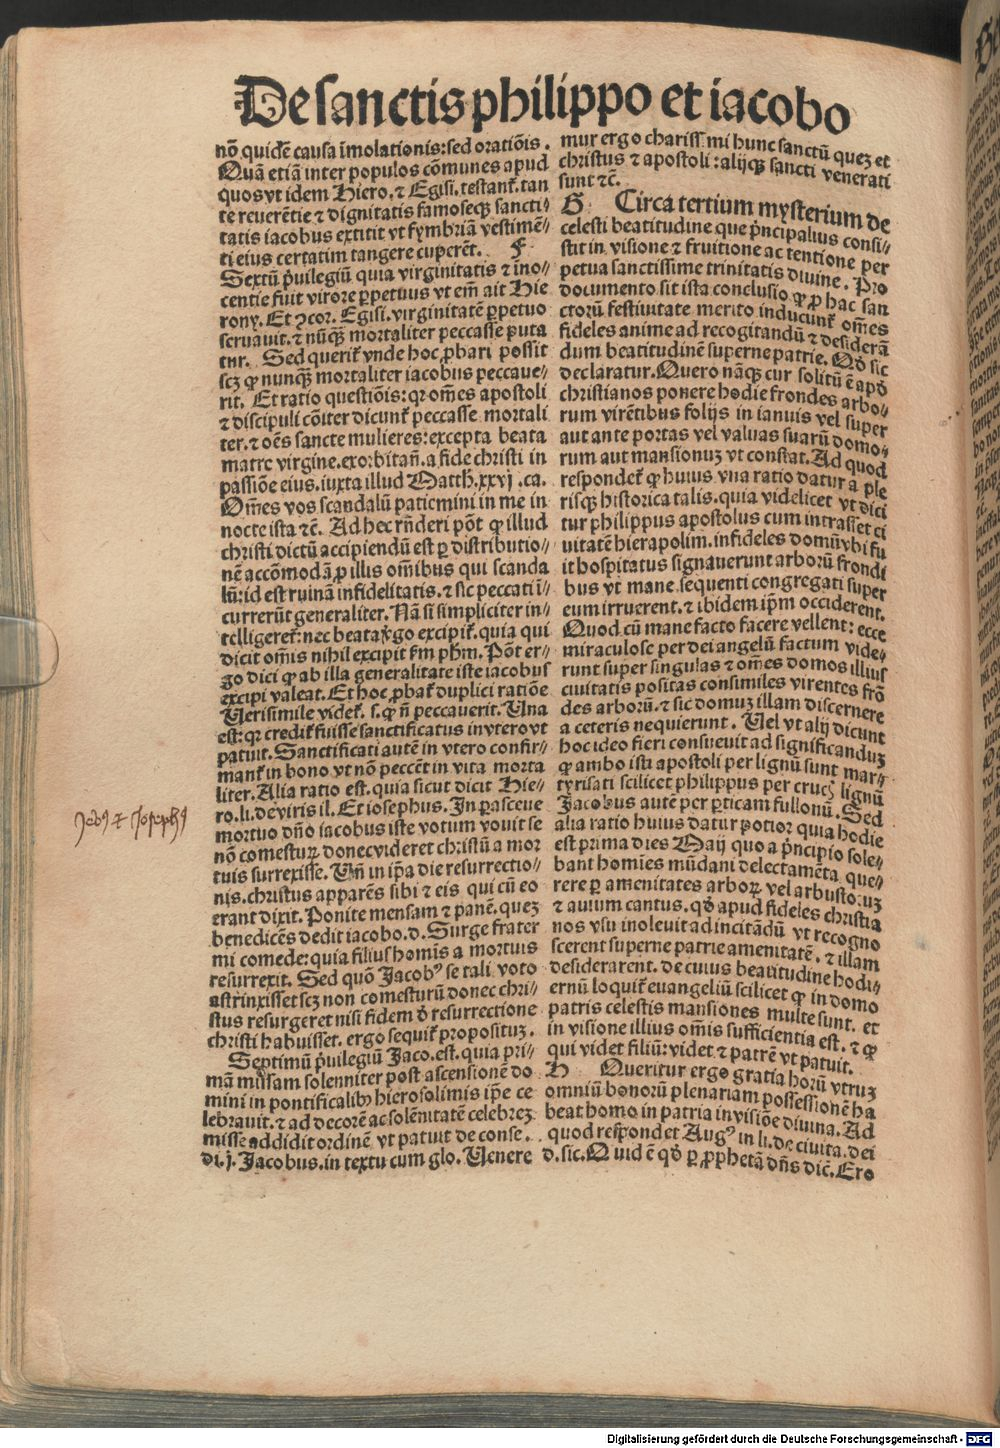 De sanctis philippo et iacobo
nō quidē causa īmolationis: sed oratiōis.
Quā etiā inter populos cōmunes apud
quos vt idem Hiero. ⁊ Egisi. testant̄. tan
te reuerētie ⁊ dignitatis famoseqꝫ sancti⸗
tatis iacobus extitit vt fymbriā vestimē⸗
ti eius certatim tangere cuperēt. F
Sextū p̓uilegiū quia virginitatis ⁊ īno⸗
centie fuit virore ꝑpetuus vt em̄ ait Hie
rony. Et ꝯcor. Egisi. virginitatē ꝑpetuo
seruauit. ⁊ nūqꝫ mortaliter peccasse puta
tur. Sed querit̄ vnde hoc ꝓbari possit
scꝫ ꝙ nunqꝫ mortaliter iacobus peccaue⸗
rit. Et ratio questiōis: qꝛ om̄es apostoli
⁊ discipuli cōiter dicunt̄ peccasse mortali
ter. ⁊ oēs sancte mulieres: excepta beata
matre virgine. exorbitan̄. a fide christi in
passiōe eius. iuxta illud Matth. xxvj. ca.
Om̄es vos scandalū patiemini in me in
nocte ista ⁊c̄. Ad hec rn̄deri pōt ꝙ illud
christi dictū accipiendū est ꝑ distributio⸗
nē accōmodā ꝓ illis om̄ibus qui scanda
lū: id est ruinā infidelitatis. ⁊ sic peccati ī⸗
currerūt generaliter. Nā si simpliciter in⸗
telligeret̄: nec beata v̓go excipit̄. quia qui
dicit om̄is nihil excipit ẜm ph̄m. Pōt er⸗
go dici ꝙ ab illa generalitate iste iacobus
excipi valeat. Et hoc ꝓbat̄ duplici ratiōe
Uerisimile videt̄. s. ꝙ n̄ peccauerit. Una
est: qꝛ credit̄ fuisse sanctificatus in vtero vt
patuit. Sanctificati autē in vtero confir⸗
mant̄ in bono vt nō peccēt in vita morta
liter. Alia ratio est. quia sicut dicit Hie⸗
ro. li. de viris il. Et iosephus. In parasceue
mortuo dn̄o iacobus iste votum vouit se
nō comesturꝫ donec videret christū a mor
tuis surrexisse. Un̄ in ip̄a die resurrectio⸗
nis. christus apparēs sibi ⁊ eis qui cū eo
erant dixit. Ponite mensam ⁊ panē. quez
benedicēs dedit iacobo. d. Surge frater
mi comede: quia filius homīs a mortuis
resurrexit. Sed quō Jacobꝰ se tali voto
astrinxisset scꝫ non comesturū donec chri⸗
stus resurgeret nisi fidem de resurrectione
christi habuisset. ergo sequit̄ propositum.
Septimū p̓uilegiū Jaco. est. quia pri⸗
mā missam solenniter post ascensionē do
mini in pontificalibꝰ hierosolimis ip̄e ce
lebrauit. ⁊ ad decorē ac solēnitatē celebrez
misse addidit ordinē. vt patuit de conse.
di. j. Jacobus. in textu cum glo. Uenere
mur ergo chariss. mi hunc sanctū quez et
christus ⁊ apostoli: alijqꝫ sancti venerati
sunt ⁊c̄.
G Circa tertium mysterium de
celesti beatitudine que p̓ncipalius consi⸗
stit in visione ⁊ fruitione ac tentione per
petua sanctissime trinitatis diuine. Pro
documento sit ista conclusio ꝙ ꝓ hac san
ctorū festiuitate merito inducunt̄ om̄es
fideles anime ad recogitandū ⁊ desiderā
dum beatitudinē superne patrie. Qd̓ sic
declaratur. Quero nāqꝫ cur solitū ē apd̓
christianos ponere hodie frondes arbo⸗
rum virētibus folijs in ianuis vel super
aut ante portas vel valuas suarū domo⸗
rum aut mansionum vt constat. Ad quod
respondet̄ ꝙ huius vna ratio datur a ple
risqꝫ historica talis. quia videlicet vt dici
tur philippus apostolus cum intrasset ci
uitatē hierapolim. infideles domū vbi fu
it hospitatus signauerunt arborū frondi
bus vt mane sequenti congregati super
eum irruerent. ⁊ ibidem ip̄m occiderent.
Quod cū mane facto facere vellent: ecce
miraculose per dei angelū factum vide⸗
runt super singulas ⁊ om̄es domos illius
ciuitatis positas consimiles virentes frō
des arborū. ⁊ sic domum illam discernere
a ceteris nequierunt. Uel vt alij dicunt
hoc ideo fieri consueuit ad significandum
ꝙ ambo isti apostoli per lignū sunt mar⸗
tyrisati scilicet philippus per crucꝭ lignū
Jacobus autē per ꝑticam fullonū. Sed
alia ratio huius datur potior quia hodie
est prima dies Maij quo a p̓ncipio sole⸗
bant homīes mūdani delectamēta que⸗
rere ꝑ amenitates arborꝫ vel arbustorum
⁊ auium cantus. qd̓ apud fideles christia
nos vsu inoleuit ad incitādū vt recogno
scerent superne patrie amenitatē. ⁊ illam
desiderarent. de cuius beatitudine hodi⸗
ernū loquit̄ euangeliū scilicet ꝙ in domo
patris celestis mansiones multe sunt. et
in visione illius om̄is sufficientia est. ⁊ ꝙ
qui videt filiū: videt ⁊ patrē vt patuit.
H Queritur ergo gratia horū vtrum
omniū bonorū plenariam possessionē ha
beat homo in patria in visiōe diuina. Ad
quod respondet Augꝰ in li. de ciuita. dei
d. sic. Quid ē qd̓ ꝑ ꝓphetā dn̄s dic̄. Ero
Jacobꝰ ⁊ Josephꝰ
Digitalisierung gefördert durch die Deutsche Forschungsgemeinschaft - DFG